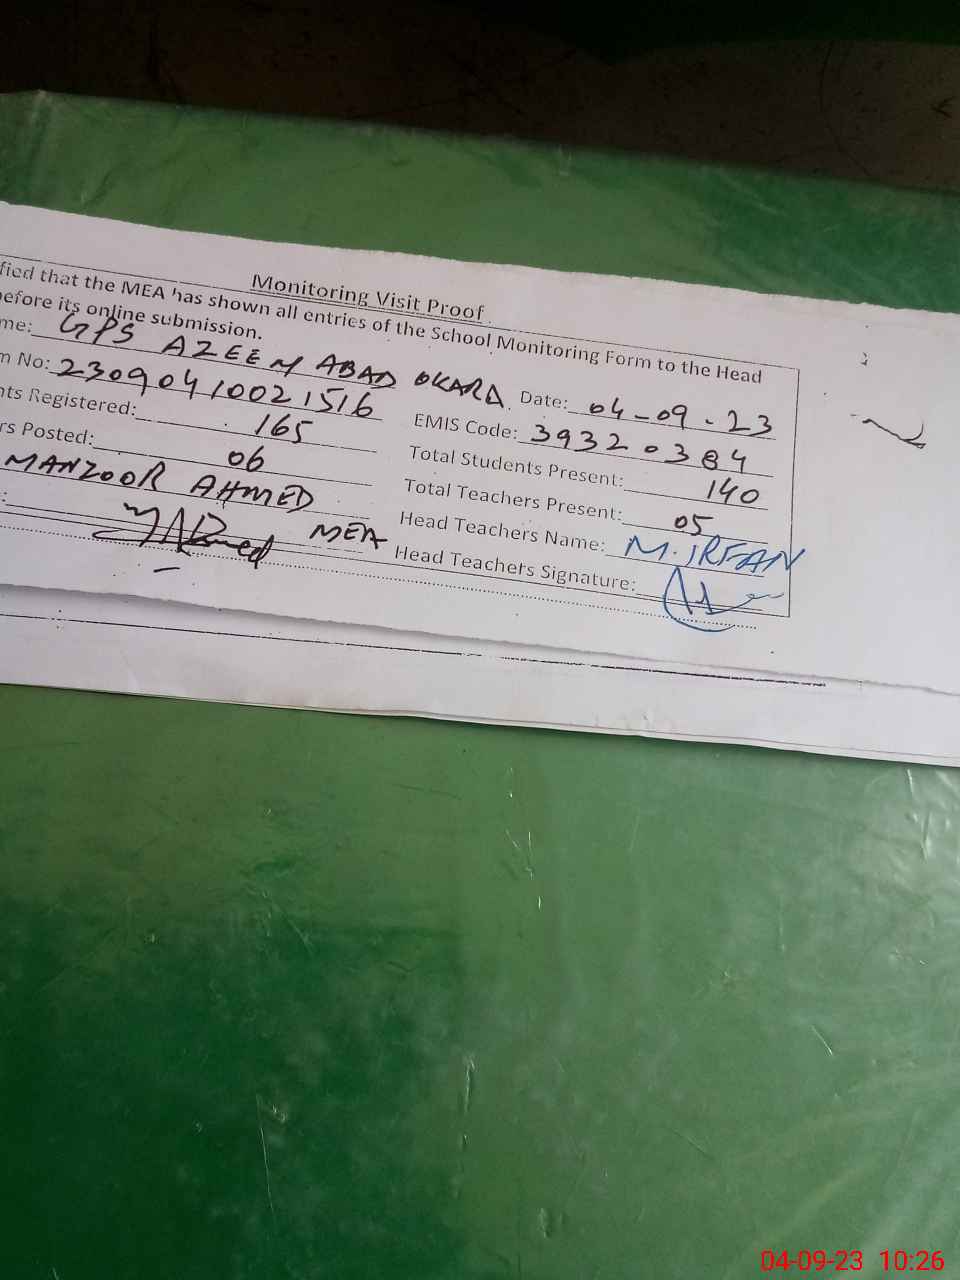 Monitoring Visit Proof
fied that the MEA has shown all entries of the School Monitoring Form to the Head
before its online submission.
me: GPS AZEEM ABAD OKARA Date: 04-09-23
m No: 23090410021516 EMIS Code: 39320384
nts Registered: 165 Total Students Present: 140
rs Posted: 06 Total Teachers Present: 05
MANZOOR AHMED Head Teachers Name: M. IRFAN
: MEA Head Teachers Signature:
04-09-23 10:26